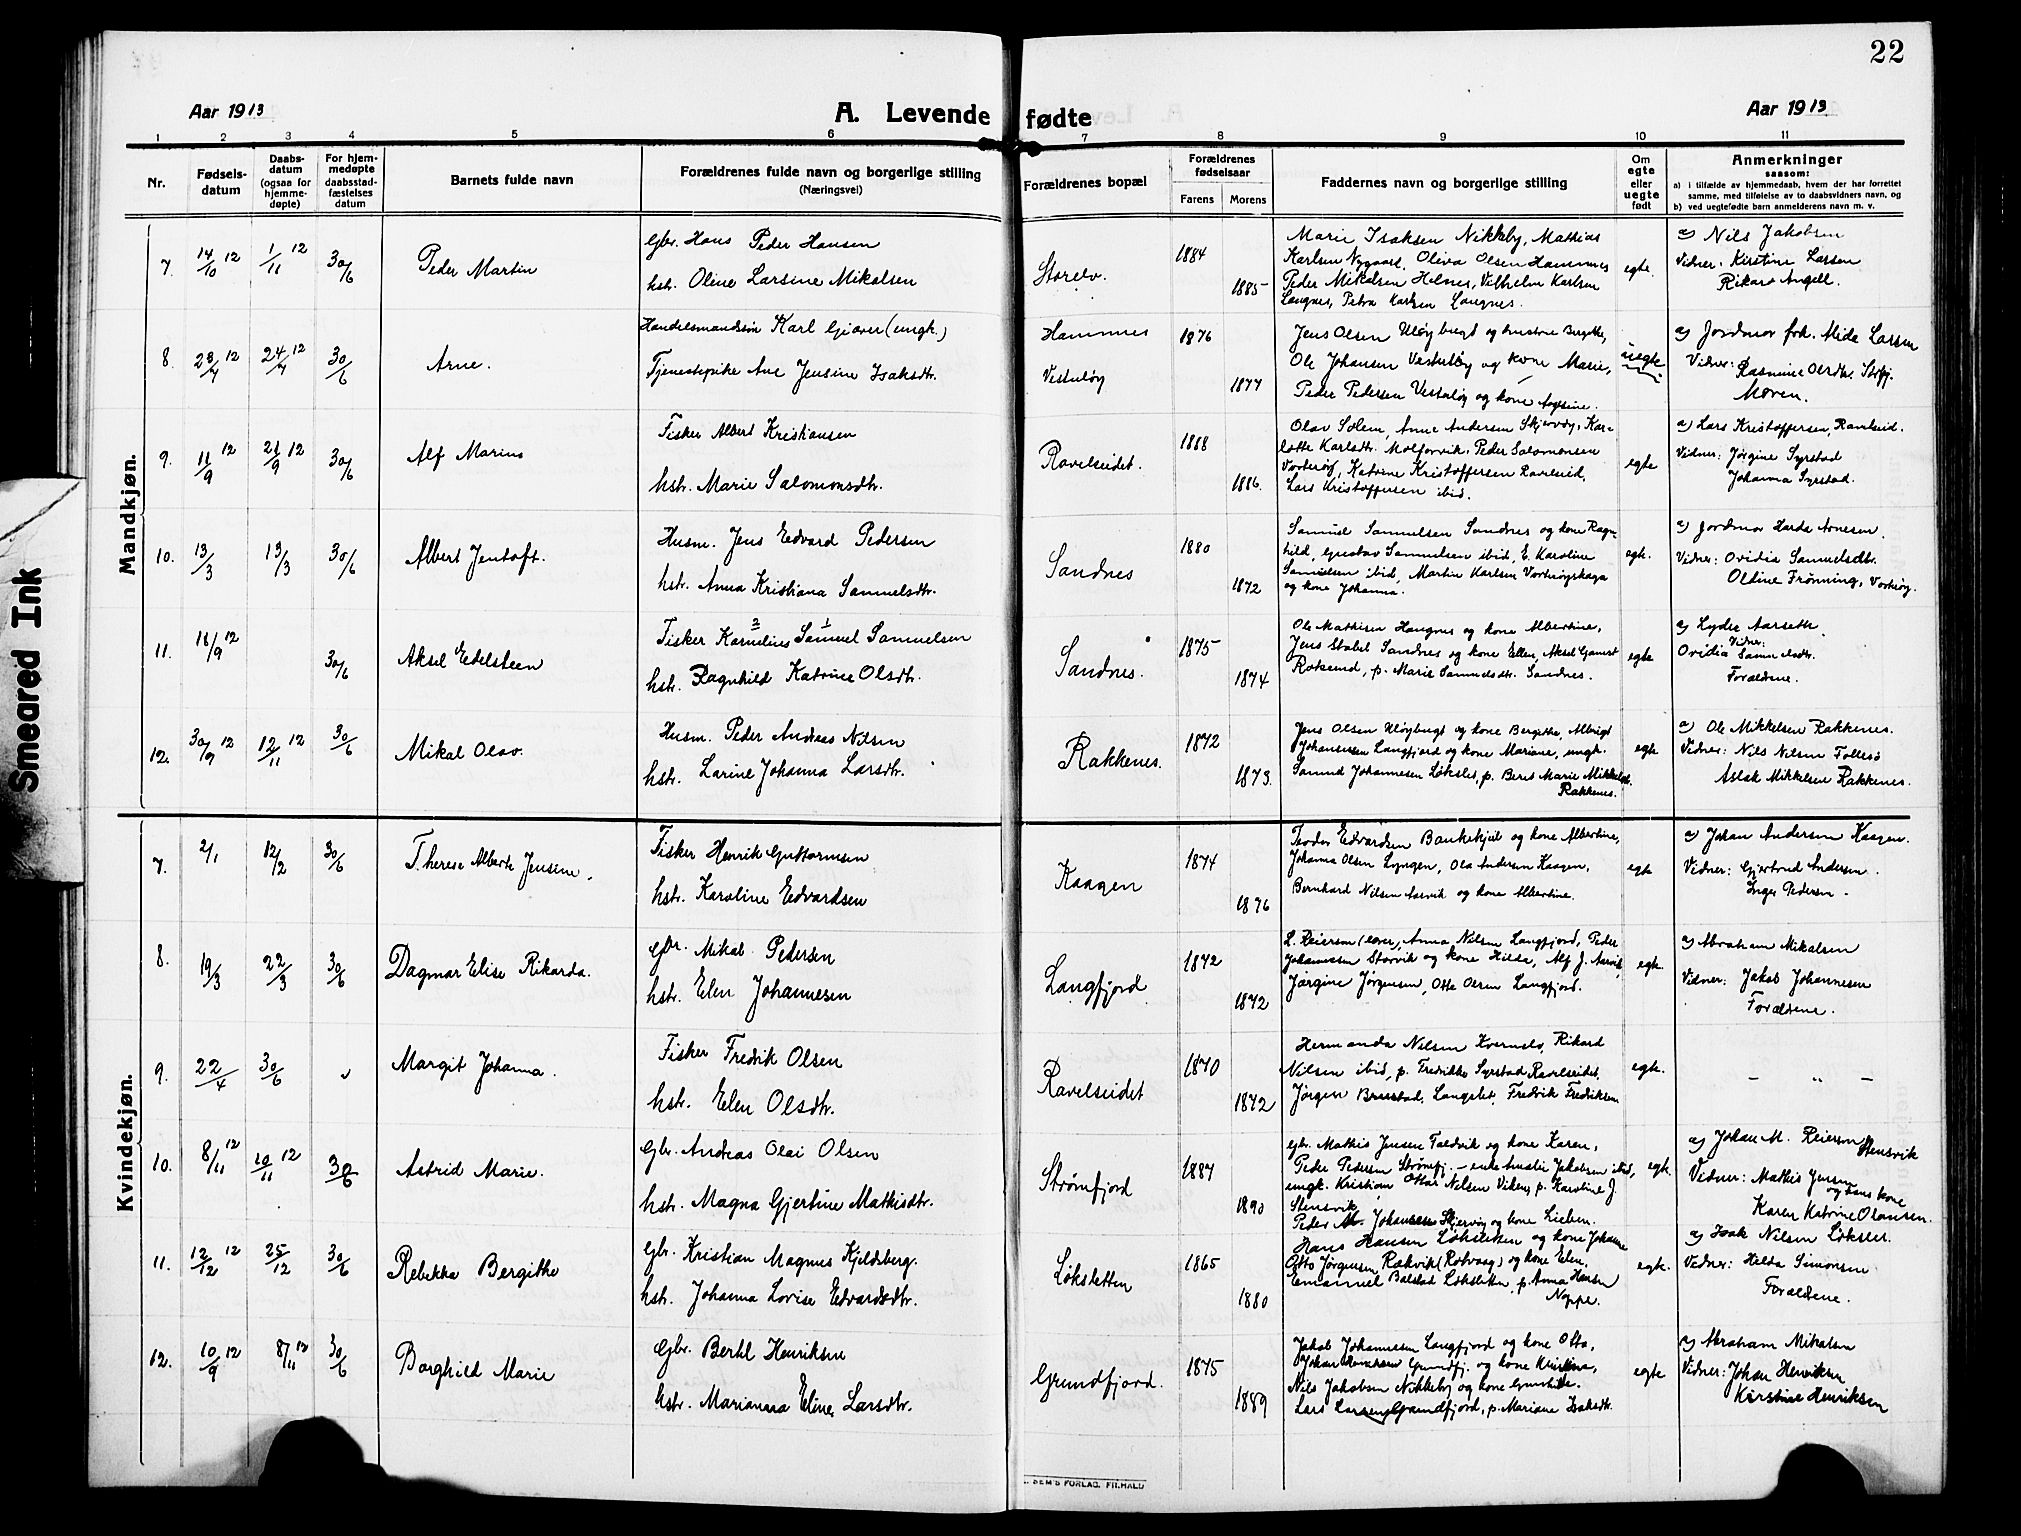 22
Aar 1913
A. Levende fødte
Aar 1913
1 2 3 4 5 6 7 8 9 10 11
Nr.
Fødsels-
datum
Daabs-
datum
(ogsaa for
hjemme-
døpte)
For hjem-
medøpte
daabsstad-
fæstelses
datum
Barnets fulde navn
Forældrenes fulde navn og borgerlige stilling
(Næringsvei)
Forældrenes bopæl
Forældrenes
fødselsaar
Farens Morens
Faddernes navn og borgerlige stilling
Om
egte
eller
uegte
født
Anmerkninger
saasom:
a) i tilfælde av hjemmedaab, hvem der har forrettet
samme, med tilføielse av to daabsvidners navn, og
b) ved uegtefødte barn anmelderens navn m. v.
Mandkjøn.
7. 14/10 12 1/11 12 30/6 Peder Martin
Gbr. Hans Peder Hansen
hstr. Oline Larsine Mikalsen
Storelv.
1884
1885
Marie Isaksen Nikkeby, Mathias
Karlsen Nygaard, Oliva Olsen Hamnnes
Peder Mikalsen Helnes, Vilhelm Karlsen
Langnes, Petra Karlsen Langnes.
egte.
a) Nils Jakobsen
Vidner: Kirstine Larsen
Rikard Angell.
8. 23/7 12 24/7 12 30/6 Arne.
Handelsmandssøn Karl Giæver (ungk.)
Tjenestepike Ane Jensine Isaksdtr.
Hamnnes
Vesterløy
1876
1877
Jens Olsen Uløybugt og hustru Bergitte,
Ole Johansen Vesterløy og kone Marie,
Peder Pedersen Vesterløy og kone
uegte
a) Jordmor frk. Mida Larsen
Vidner: Rasmine Olsdtr. Strfj.
Moren.
9. 11/9 12 21/9 12 30/6 Alf Marius
Fisker Albert Kristiansen
hstr. Marie Salomonsdtr.
Ravelseidet.
1888
1886.
Olav Solem, Anne Andersen Skjervøy, Kar-
lotte Karlsdtr. Molforvik, Peder Salomonsen
Vorterøy, Katrine Kristoffersen Ravleid,
Lars Kristoffersen ibid.
egte
a) Lars Kristoffersen, Ravleid.
Vidner: Jørgine Syrstad
Johanna Syrstad.
10. 13/3 19/3 30/6 Albert Jentoft.
Husm. Jens Edvard Pedersen
hstr. Anna Kristiana Samuelsdtr.
Sandnes
1880
1872
Samuel Samuelsen Sandnes og kone Ragn-
hild, Gustav Samuelsen ibid, E. Karoline
Samuelsen ibid, Martin Karlsen Vorterøyskaga
og kone Johanna.
egte.
a) Jordmor Harda Arnesen.
Vidner: Ovidia Samuelsdtr.
Oldine Frønning, Vorterøy.
11. 18/9 12 30/6 Aksel Edelsteen
2 1
Fisker Kornelius Samuel Samuelsen
hstr. Ragnhild Katrine Olsdtr.
Sandnes.
1875
1874
Ole Mathisen Haugnes og kone Albertine,
Jens Stabel Sandnes og kone Ellen, Aksel Gamst
Rotsund, p. Marie Samuelsdtr. Sandnes.
egte
a) Lyder Aarseth.
Vidner:
Ovidia Samuelsdtr.
Forældrene.
12. 30/9 12 12/11 12 30/6 Mikal Olav.
Husm. Peder Andreas Nilsen
hstr. Larine Johanna Larsdtr.
Rakkenes.
1872
1873.
Jens Olsen Uløybugt og kone Bergithe, Albrigt
Johannesen Langfjord og kone Mariane, ungk.
Samuel Johannesen Løkslet, p. Beret Marie Mikkelsdtr.
Rakkenes.
egte
a) Ole Mikkelsen Rakkenes.
Vidner: Nils Nilsen Follesø
Aslak Mikkelsen Rakkenes.
Kvindekjøn.
7. 2/1 12/2 30/6 Therese Alberte Jensine.
Fisker Henrik Guttormsen
hstr. Karoline Edvardsen
Kaagen
1874
1876
Teodor Edvardsen Bankekjeil og kone Albertine,
Johanna Olsen Lyngen, Ola Andersen Kaagen,
Bernhard Nilsen Aarvik og kone Albertine.
egte
a) Johan Andersen Kaagen.
Vidner: Gjertrud Andersen.
Inger Pedersen.
8. 19/3 22/3 30/6 Dagmar Elise Rikarda.
Gbr. Mikal Pedersen
hstr. Elen Johannesen
Langfjord
1872
1872
L. Reiersen (lærer), Anna Nilsen Langfjord, Peder
Johannesen Storvik og kone Hilda, Alf J. Aarvik,
Jørgine Jørgensen, Otte Olsen Langfjord.
egte.
a) Abraham Mikalsen
Vidner: Jakob Johannesen
Forældrene.
9. 22/4 30/6 Margit Johanna.
Fisker Fredrik Olsen
hstr. Elen Olsdtr.
Ravelseidet
1870
1872
Hermanda Nilsen Kvernslo, Rikard
Nilsen ibid, p. Fredrikke Syrstad Ravelseidet,
Jørgen Langslet, Fredrik Fredriksen
egte.
– „ –
10. 8/11 12 10/11 12 30/6 Astrid Marie.
Gbr. Andreas Olai Olsen
hstr. Magna Gjertine Mathisdtr.
Strømfjord
1887
1890
Gbr. Mathis Jensen Taldvik og kone Karen,
Peder Pedersen Strømfj. – enke Amalie Jakobsen ibid,
ungk. Kristian Ottar Nilsen Viken, p. Karoline J.
Stensvik,
Peder M. Johansen Skjervøy og kone
egte.
a) Johan M. Reiersen Stensvik
Vidner: Mathis Jensen
og hans kone
Karen Katrine Olausen.
11. 12/12 12 25/12 30/6 Rebekka Bergithe
Gbr. Kristian Magnus Kjeldsberg.
hstr. Johanna Lovise Edvardsdtr.
Løksletten
1865
1880
Hans Hansen Løksletten og kone Johanne
Otto Jørgensen Rakvik (Rotvaag) og kone Elen,
Emanuel Balstad Løksletten, p. Anna Hansen
Noppe.
egte.
a) Isak Nilsen Løkslet.
Vidner: Hilda Simonsen
Forældrene.
12. 10/9 12 8/11 12 30/6 Borghild Marie
Gbr. Bertel Henriksen
hstr. Marianna Eline Larsdtr.
Grundfjord.
1875
1889
Jakob Johannesen Langfjord og kone Otta,
Johan Henriksen Grundfj. og kone Kirstina,
Nils Jakobsen Nikkeby og kone Gunhilde.
Lars Larsen Grundfjord, p. Mariane Isaksdtr.
egte
a) Abraham Mikalsen
Vidner: Johan Henriksen
Kirstine Henriksen
SEM'S FORLAG, FR.HALD
Smeared Ink